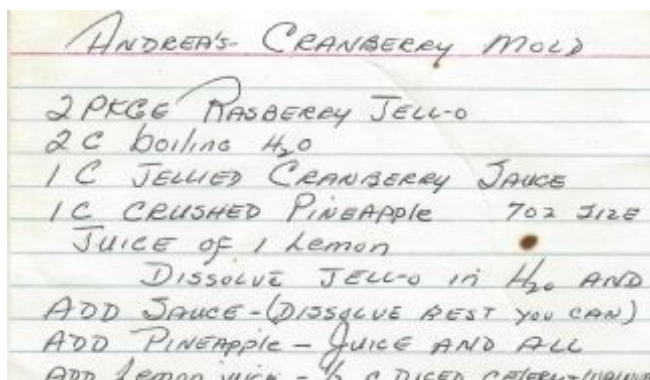 ANDREA'S- CRANBERRY MOLD
2 PKGE RASBERRY JELL-O
2 C boiling H2O
1 C JELLIED CRANBERRY SAUCE
1 C CRUSHED PINEAPPLE 7OZ SIZE
JUICE OF 1 Lemon
DISSOLVE JELL-O in H2O AND
ADD SAUCE-(DISSOLVE BEST YOU CAN)
ADD PINEAPPLE - JUICE AND ALL
ADD Lemon JUICE - 1/2 C DICED CELERY-